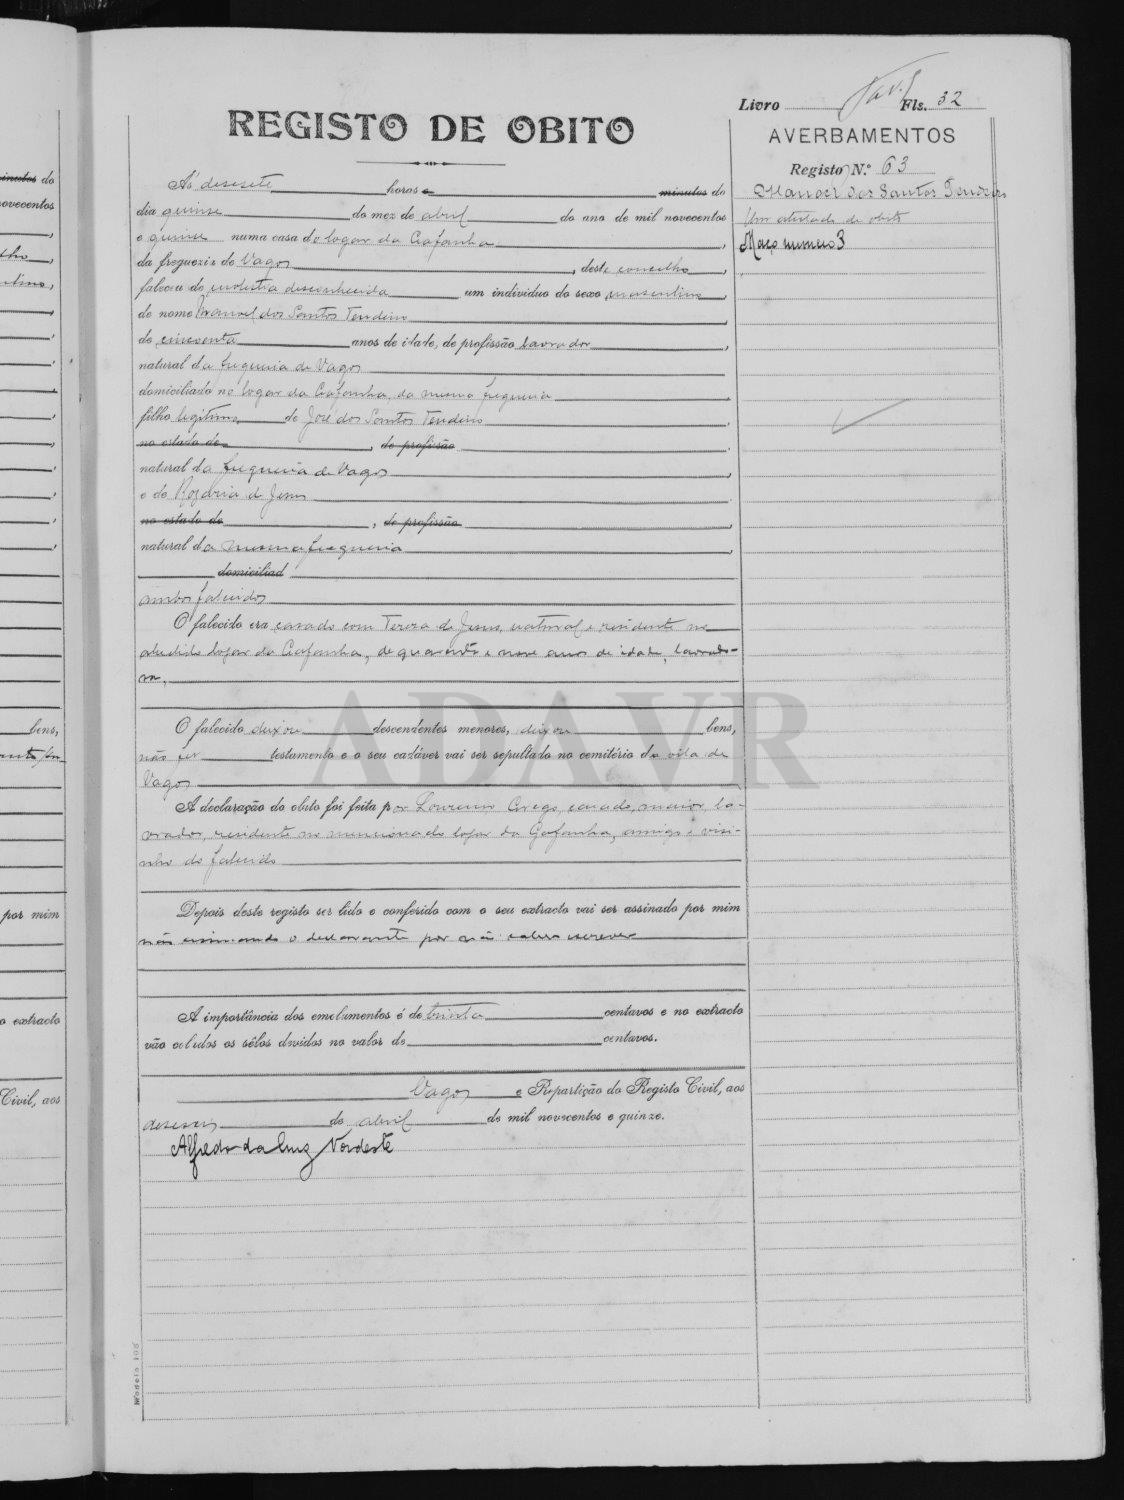 Livro Fls. 32
REGISTO DE OBITO
AVERBAMENTOS
Registo N.º 63
Manoel dos Santos Tendeiro
Um atestado de obito
Maço numero 3
minutos do
novecentos
bens,
por mim
o extracto
Civil, aos
Ás desesete horas e minutos do
dia quinse do mez de abril do ano de mil novecentos
e quinse numa casa do logar da Gafanha,
da freguezia de Vagos, deste concelho,
faleceu de molestia desconhecida um individuo do sexo masculino,
de nome Manuel dos Santos Tendeiro
de cincoenta anos de idade, de profissão lavrador,
natural da freguesia de Vagos
domiciliado no logar da Gafanha, da mesma freguesia
filho legitimo de José dos Santos Tendeiro
no estado de, de profissão
natural da freguesia de Vagos
e de Rosaria de Jesus
no estado de, de profissão
natural da mesma freguesia
domiciliad
ambos falecidos
O falecido era casado com Tereza de Jesus, natural e residente no
aludido logar da Gafanha, de quarenta e nove anos de idade, lavrado-
ra,
O falecido deixou descendentes menores, deixou bens,
não fez testamento e o seu cadáver vai ser sepultado no cemitério da vila de
Vagos
A declaração do obito foi feita por Lourenço casado, maior, la-
vrador, residente no mencionado logar da Gafanha, amigo e visi-
nho do falecido
Depois deste registo ser lido e conferido com o seu extracto vai ser assinado por mim
não assinando o declarante por não saber escrever
A importância dos emolumentos é de trinta centavos e no extracto
vão colados os sêlos devidos no valor de centavos.
Vagos e Repartição do Registo Civil, aos
deseseis de abril de mil novecentos e quinze.
Alfredo da Cruz Nordeste
Modelo 106
ADAVR